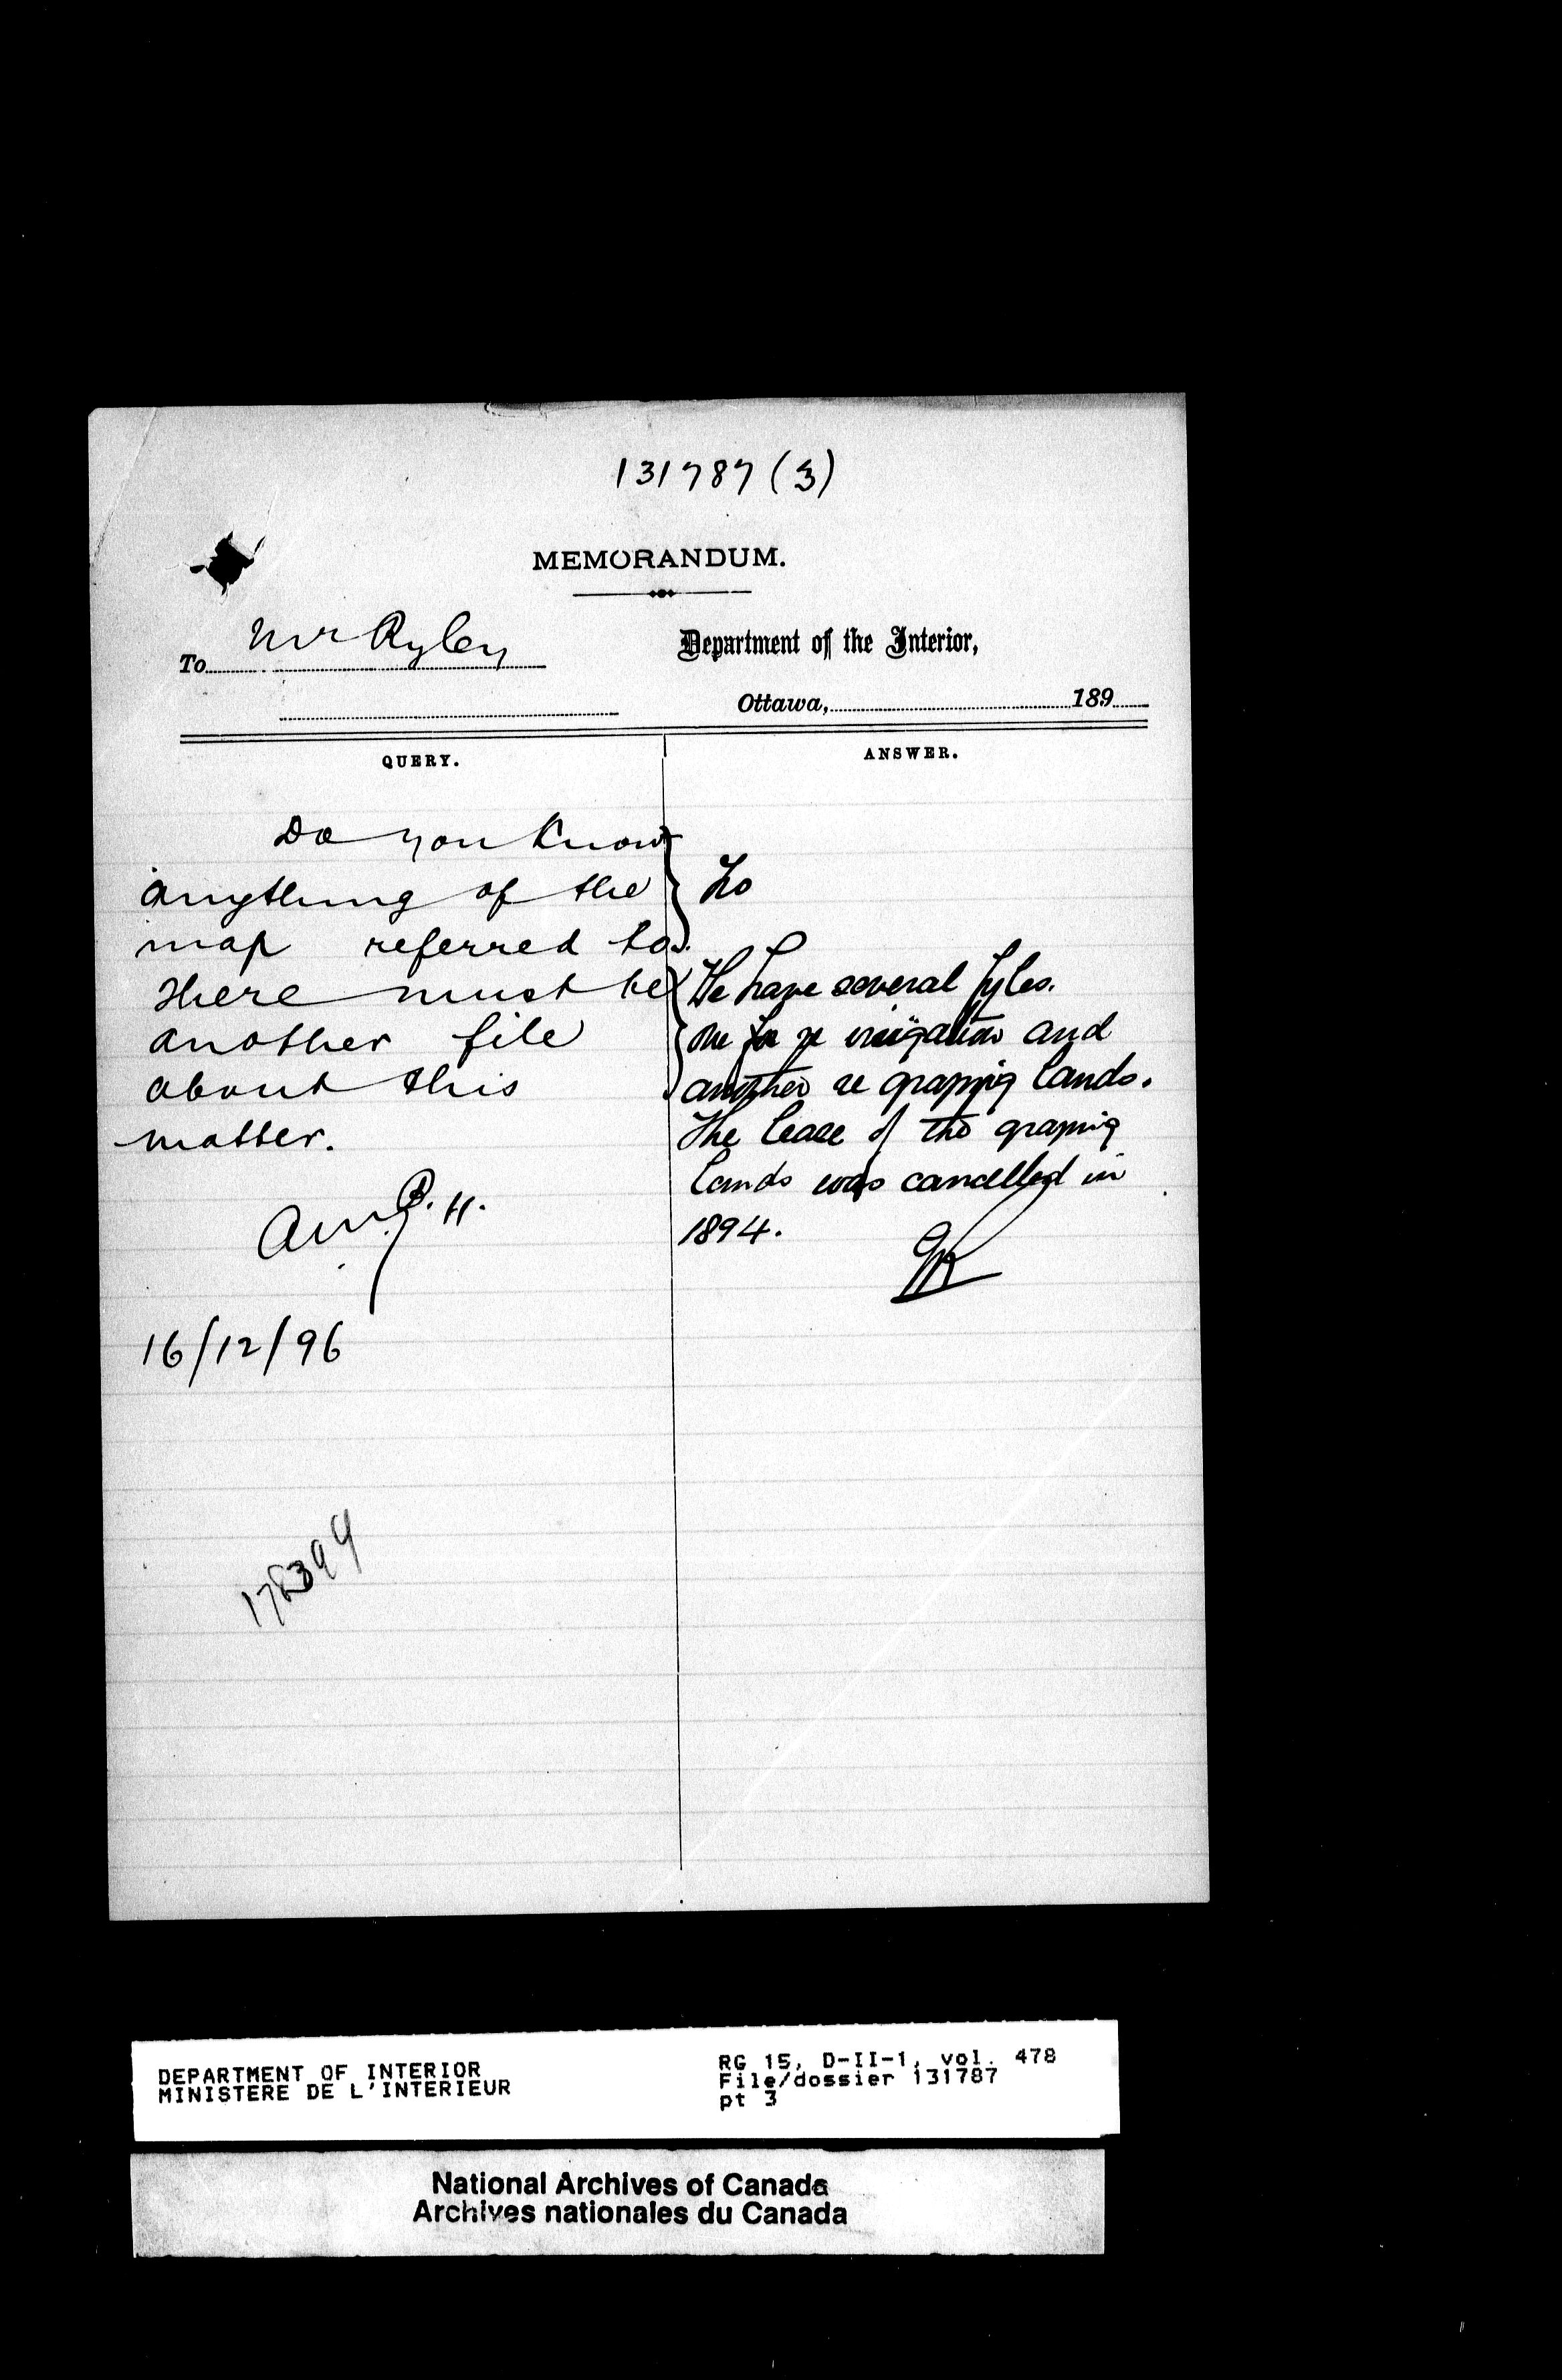 131787 (3)
MEMORANDUM.
To Mr Ryley
Department of the Interior,
Ottawa, 189
QUERY.
Do you know
anything of the
map referred to.
There must be
another file
about this
matter.
H.
16/12/96
178399
ANSWER.
No
We have several fyles.
One re irrigation and
another re grazing lands.
The lease of the grazing
lands was cancelled in
1894.
GR
DEPARTMENT OF INTERIOR
MINISTERE DE L'INTERIEUR
RG 15, D-II-1, vol. 478
File/dossier 131787
pt 3
National Archives of Canada
Archives nationales du Canada